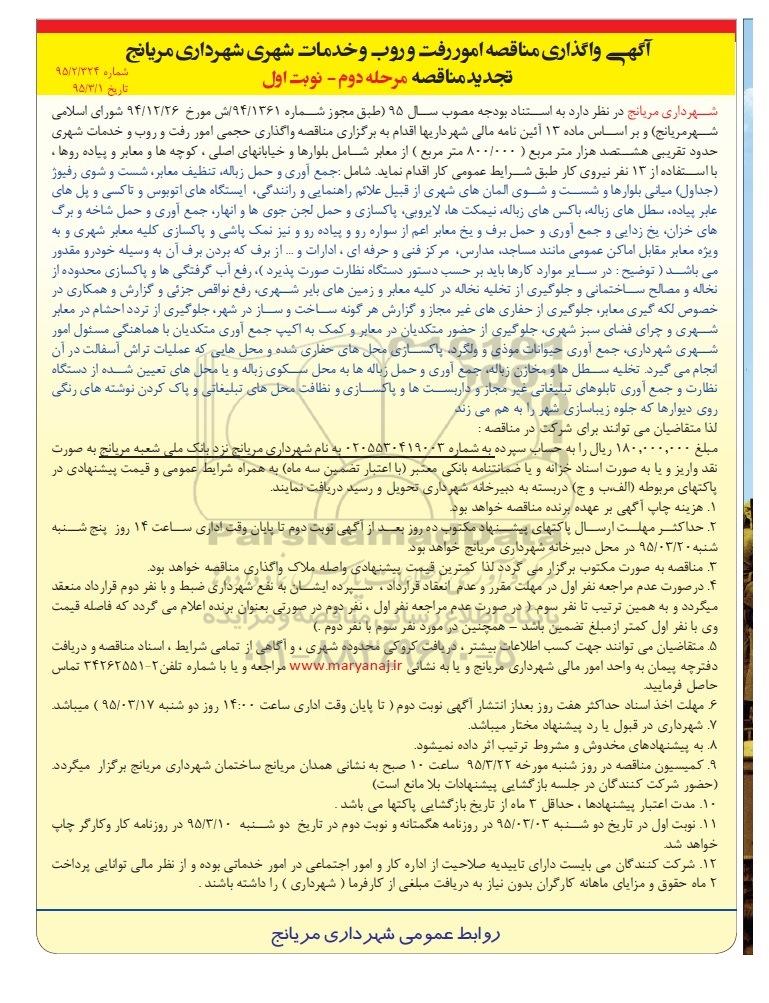 آگهی واگذاری مناقصه امور رفت و روب و خدمات شهری شهرداری مریانج
تجدید مناقصه مرحله دوم - نوبت اول
شماره ۹۵/۲/۳۲۴
تاریخ ۹۵/۳/۱
شهرداری مریانج در نظر دارد به استناد بودجه مصوب سال ۹۵ (طبق مجوز شماره ۹۴/۱۳۶۱/ش مورخ ۹۴/۱۲/۲۶ شورای اسلامی
شهرمریانج) و بر اساس ماده ۱۳ آئین نامه مالی شهرداریها اقدام به برگزاری مناقصه واگذاری حجمی امور رفت و روب و خدمات شهری
حدود تقریبی هشتصد هزار متر مربع ( ۸۰۰/۰۰۰ متر مربع ) از معابر شامل بلوارها و خیابانهای اصلی ، کوچه ها و معابر و پیاده روها ،
با استفاده از ۱۳ نفر نیروی کار طبق شرایط عمومی کار اقدام نماید. شامل :جمع آوری و حمل زباله، تنظیف معابر، شست و شوی رفیوژ
(جداول) میانی بلوارها و شست و شوی المان های شهری از قبیل علائم راهنمایی و رانندگی، ایستگاه های اتوبوس و تاکسی و پل های
عابر پیاده، سطل های زباله، باکس های زباله، نیمکت ها، لایروبی، پاکسازی و حمل لجن جوی ها و انهار، جمع آوری و حمل شاخه و برگ
های خزان، یخ زدایی و جمع آوری و حمل برف و یخ معابر اعم از سواره رو و پیاده رو و نیز نمک پاشی و پاکسازی کلیه معابر شهری و به
ویژه معابر مقابل اماکن عمومی مانند مساجد، مدارس، مرکز فنی و حرفه ای ، ادارات و ... از برف که بردن برف آن به وسیله خودرو مقدور
می باشد ( توضیح : در سایر موارد کارها باید بر حسب دستور دستگاه نظارت صورت پذیرد )، رفع آب گرفتگی ها و پاکسازی محدوده از
نخاله و مصالح ساختمانی و جلوگیری از تخلیه نخاله در کلیه معابر و زمین های بایر شهری، رفع نواقص جزئی و گزارش و همکاری در
خصوص لکه گیری معابر، جلوگیری از حفاری های غیر مجاز و گزارش هر گونه ساخت و ساز در شهر، جلوگیری از تردد احشام در معابر
شهری و چرای فضای سبز شهری، جلوگیری از حضور متکدیان در معابر و کمک به اکیپ جمع آوری متکدیان با هماهنگی مسئول امور
شهری شهرداری، جمع آوری حیوانات موذی و ولگرد، پاکسازی محل های حفاری شده و محل هایی که عملیات تراش آسفالت در آن
انجام می گیرد. تخلیه سطل ها و مخازن زباله، جمع آوری و حمل زباله ها به محل سکوی زباله و یا محل های تعیین شده از دستگاه
نظارت و جمع آوری تابلوهای تبلیغاتی غیر مجاز و داربست ها و پاکسازی و نظافت محل های تبلیغاتی و پاک کردن نوشته های رنگی
روی دیوارها که جلوه زیباسازی شهر را به هم می زند
لذا متقاضیان می توانند برای شرکت در مناقصه :
مبلغ ۱۸۰,۰۰۰,۰۰۰ ریال را به حساب سپرده به شماره ۰۲۰۵۵۳۰۴۱۹۰۰۳ به نام شهرداری مریانج نزد بانک ملی شعبه مریانج به صورت
نقد واریز و یا به صورت اسناد خزانه و یا ضمانتنامه بانکی معتبر (با اعتبار تضمین سه ماه) به همراه شرایط عمومی و قیمت پیشنهادی در
پاکتهای مربوطه (الف،ب و ج) دربسته به دبیرخانه شهرداری تحویل و رسید دریافت نمایند.
۱. هزینه چاپ آگهی بر عهده برنده مناقصه خواهد بود.
۲. حداکثر مهلت ارسال پاکتهای پیشنهاد مکتوب ده روز بعد از آگهی نوبت دوم تا پایان وقت اداری ساعت ۱۴ روز پنج شنبه
شنبه ۹۵/۰۳/۲۰ در محل دبیرخانه شهرداری مریانج خواهد بود.
۳. مناقصه به صورت مکتوب برگزار می گردد لذا کمترین قیمت پیشنهادی واصله ملاک واگذاری مناقصه خواهد بود.
۴. درصورت عدم مراجعه نفر اول در مهلت مقرر و عدم انعقاد قرارداد ، سپرده ایشان به نفع شهرداری ضبط و با نفر دوم قرارداد منعقد
میگردد و به همین ترتیب تا نفر سوم. ( در صورت عدم مراجعه نفر اول ، نفر دوم در صورتی بعنوان برنده اعلام می گردد که فاصله قیمت
وی با نفر اول کمتر ازمبلغ تضمین باشد – همچنین در مورد نفر سوم با نفر دوم .)
۵. متقاضیان می توانند جهت کسب اطلاعات بیشتر ، دریافت کروکی محدوده شهری ، و آگاهی از تمامی شرایط ، اسناد مناقصه و دریافت
دفترچه پیمان به واحد امور مالی شهرداری مریانج و یا به نشانی www.maryanaj.ir مراجعه و یا با شماره تلفن۲-۳۴۲۶۲۵۵۱ تماس
حاصل فرمایید.
۶. مهلت اخذ اسناد حداکثر هفت روز بعداز انتشار آگهی نوبت دوم ( تا پایان وقت اداری ساعت ۱۴:۰۰ روز دو شنبه ۹۵/۰۳/۱۷ ) میباشد.
۷. شهرداری در قبول یا رد پیشنهاد مختار میباشد.
۸. به پیشنهادهای مخدوش و مشروط ترتیب اثر داده نمیشود.
۹. کمیسیون مناقصه در روز شنبه مورخه ۹۵/۳/۲۲ ساعت ۱۰ صبح به نشانی همدان مریانج ساختمان شهرداری مریانج برگزار میگردد.
(حضور شرکت کنندگان در جلسه بازگشایی پیشنهادات بلا مانع است)
۱۰. مدت اعتبار پیشنهادها ، حداقل ۳ ماه از تاریخ بازگشایی پاکتها می باشد .
۱۱. نوبت اول در تاریخ دو شنبه ۹۵/۰۳/۰۳ در روزنامه هگمتانه و نوبت دوم در تاریخ دو شنبه ۹۵/۳/۱۰ در روزنامه کار وکارگر چاپ
خواهد شد.
۱۲. شرکت کنندگان می بایست دارای تاییدیه صلاحیت از اداره کار و امور اجتماعی در امور خدماتی بوده و از نظر مالی توانایی پرداخت
۲ ماه حقوق و مزایای ماهانه کارگران بدون نیاز به دریافت مبلغی از کارفرما ( شهرداری ) را داشته باشند .
روابط عمومی شهرداری مریانج